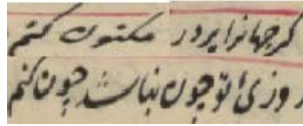 گر جهانرا پر در مکنون کنم
روزی تو چون نباشد چون کنم